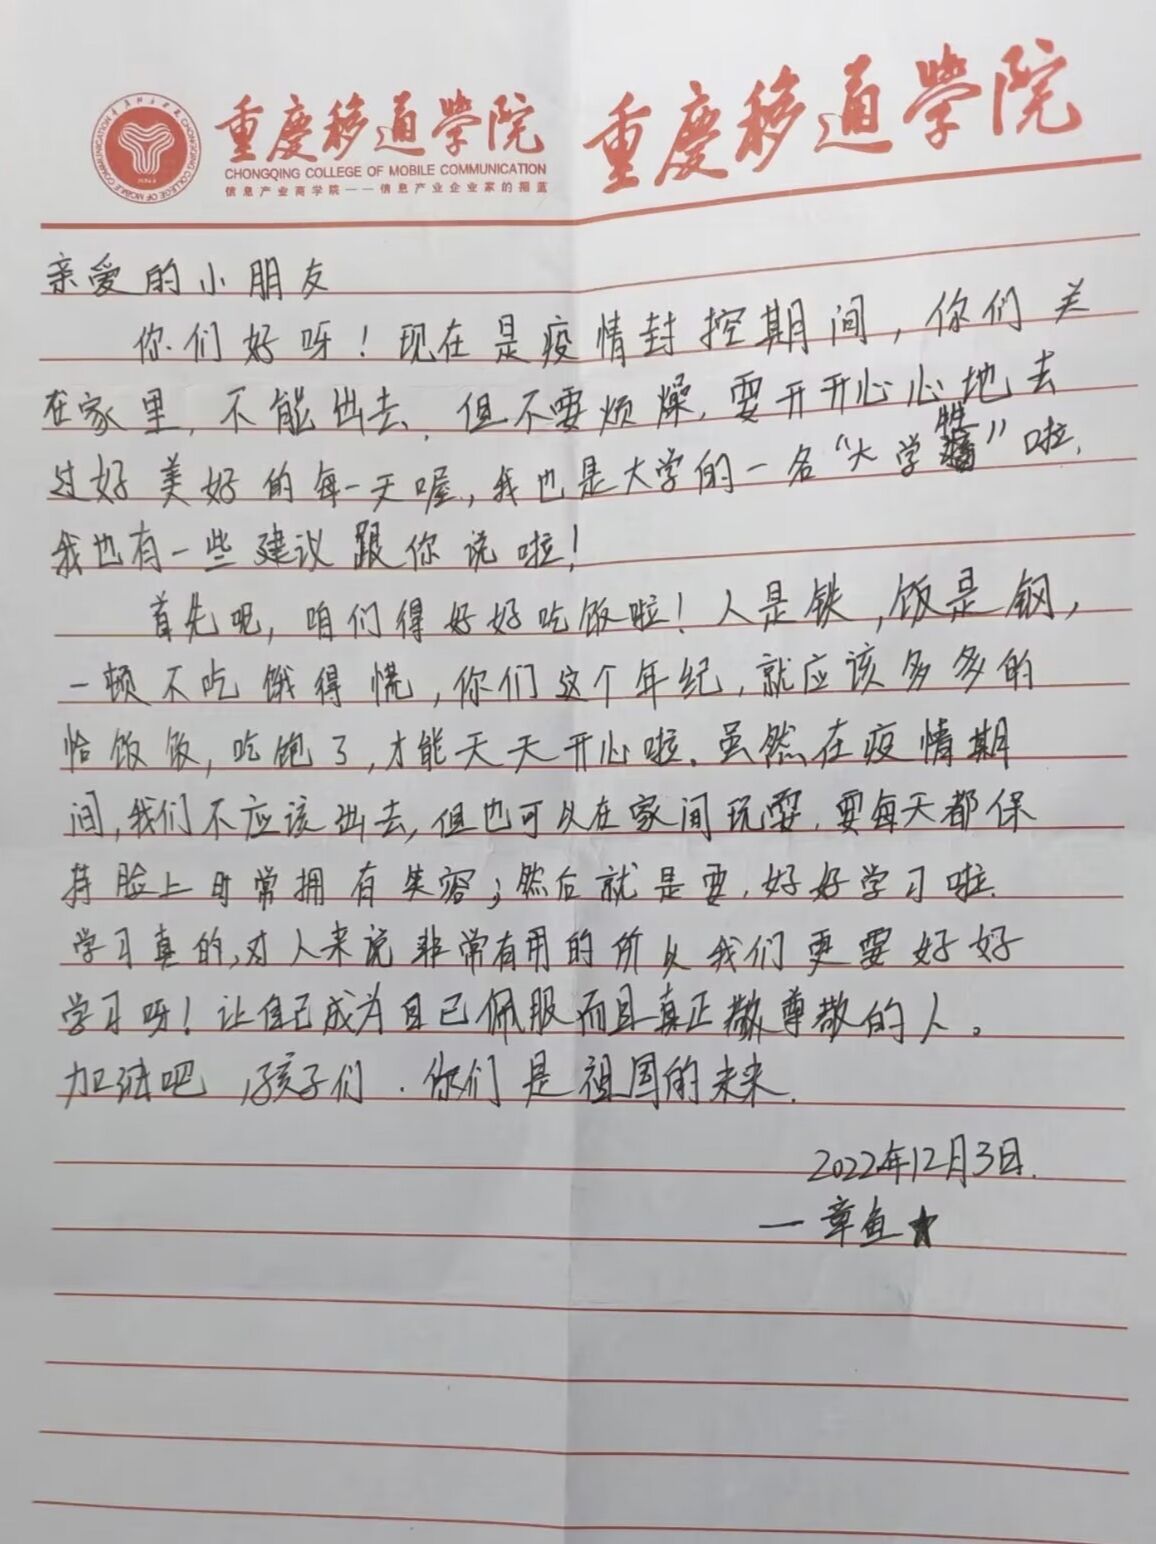 重庆移通学院 重庆移通学院
CHONGQING COLLEGE OF MOBILE COMMUNICATION
信息产业商学院——信息产业企业家的摇篮
亲爱的小朋友
你们好呀！现在是疫情封控期间，你们关
在家里，不能出去，但不要烦燥，要开开心心地去
过好美好的每一天喔，我也是大学的一名“大学牲”啦，
我也有一些建议跟你说啦！
首先呢，咱们得好好吃饭啦！人是铁，饭是钢，
一顿不吃饿得慌，你们这个年纪，就应该多多的
恰饭饭，吃饱了，才能天天开心啦。虽然在疫情期
间，我们不应该出去，但也可以在家间玩耍，要每天都保
持脸上时常拥有笑容；然后就是要，好好学习啦，
学习真的，对人来说非常有用的价以我们更要好好
学习呀！让自己成为自己佩服而且真正敬尊敬的人。
加油吧，孩子们．你们是祖国的未来．
2022年12月3日．
一章鱼★